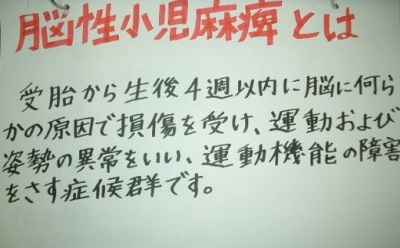 脳性小児麻痺とは
受胎から生後4週以内に脳に何ら
かの原因で損傷を受け、運動および
姿勢の異常をいい、運動機能の障害
をさす症候群です。